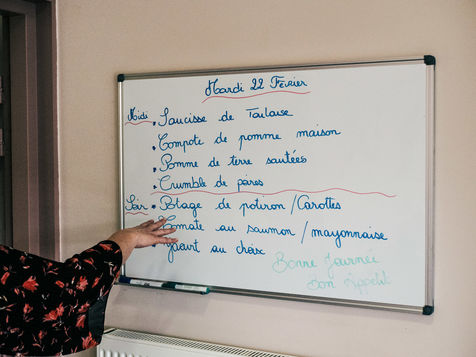 Mardi 22 Février
Midi • Saucisse de Toulouse
• Compote de pomme maison
• Pomme de terre sautées
• Crumble de poires
Soir • Potage de potiron / Carottes
Tomate au saumon / mayonnaise
Yaourt au choix
Bonne Journée
Bon Appetit